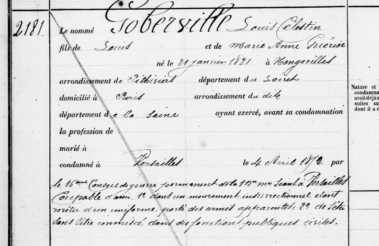 2181.
Le nommé Goberville Louis Célestin
fils de Louis et de Marie Anne Guérin
né le 21 janvier 1821 à Hangervilles
arrondissement de Pithiviers département du Loiret
domicilié à Paris arrondissement du dit
département de la Seine ayant exercé, avant sa condamnation
la profession de
marié à
condamné à Versailles le 4 Avril 1872 par
le 16ème Conseil de guerre permanent de la 1ère mre séant à Versailles
Coupable d'avoir 1° dans un mouvement insurrectionnel, étant
revêtu d'un uniforme, porté des armes apparentes 2° de s'être
sans titre immiscé dans des fonctions publiques civiles.
Nature et
condamna